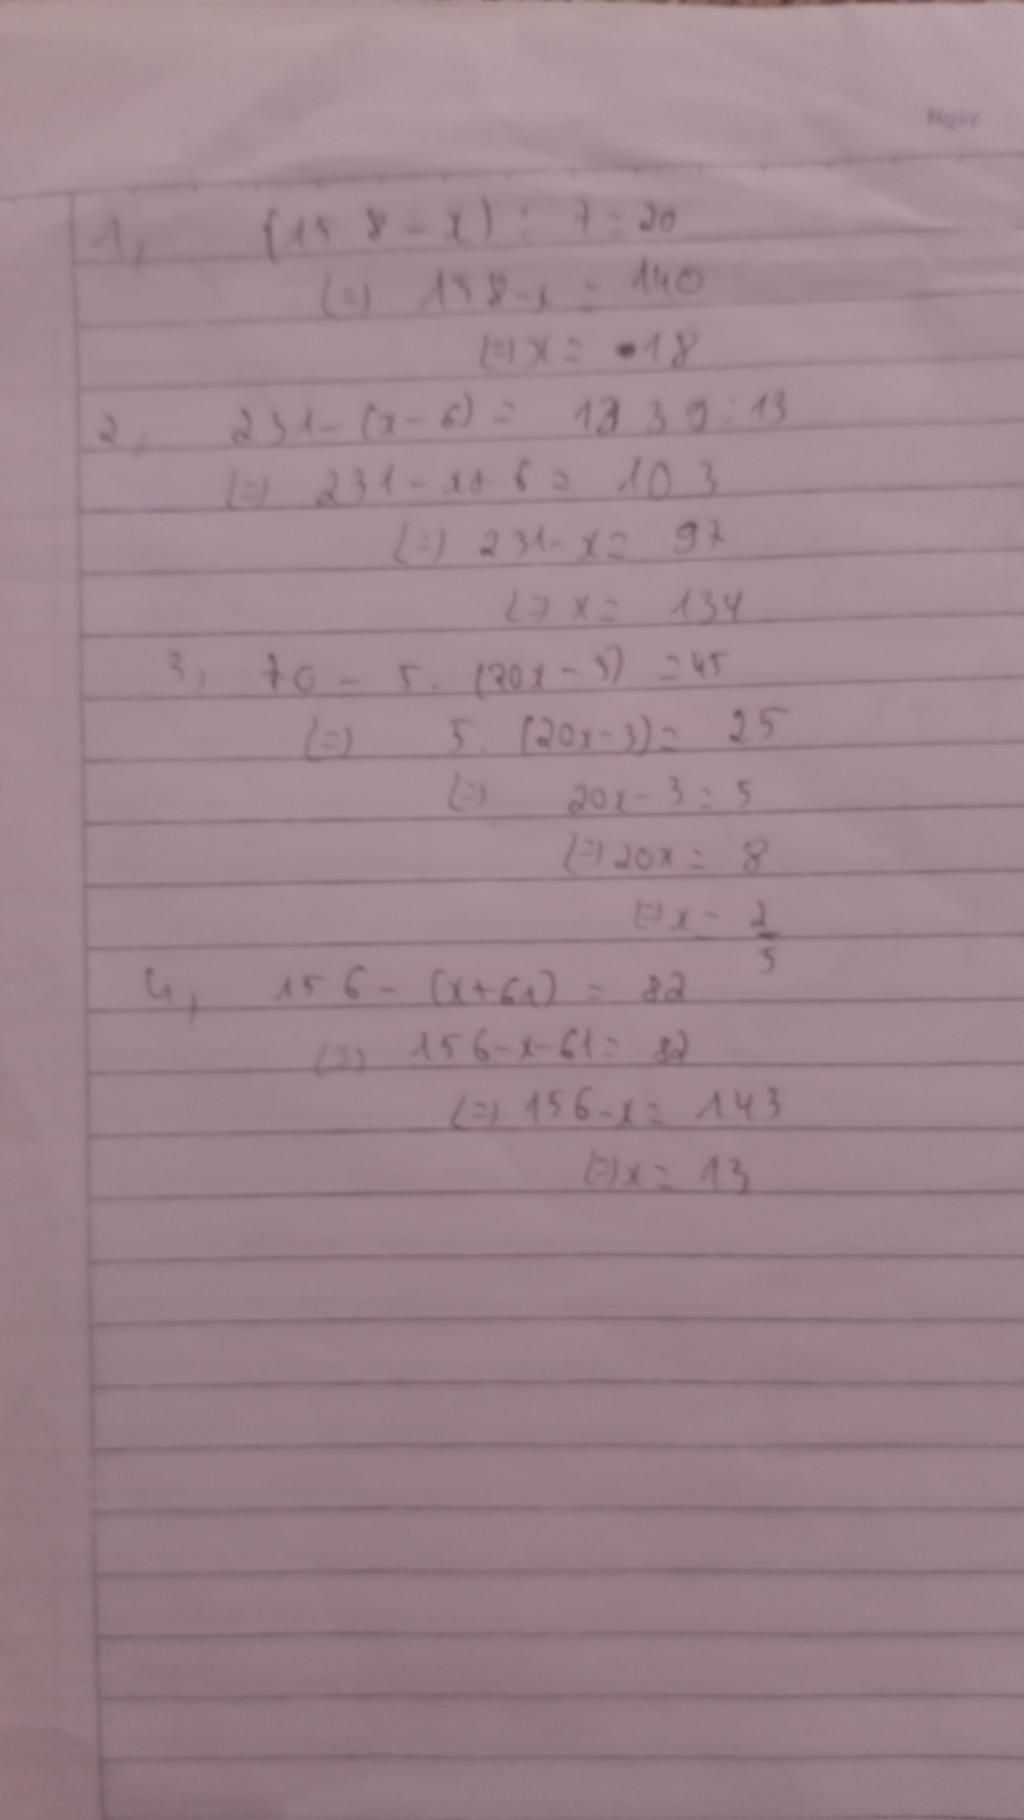 Ngày
1, (158 - x) : 7 = 20
(=) 158 - x = 140
(=) x = 18
2, 231 - (x - 6) = 1339 : 13
(=) 231 - x + 6 = 103
(=) 231 - x = 97
(=) x = 134
3, 70 - 5. (20x - 3) = 45
(=) 5. (20x - 3) = 25
(=) 20x - 3 = 5
(=) 20x = 8
(=) x = 2/5
4, 156 - (x + 61) = 82
(=) 156 - x - 61 = 82
(=) 156 - x = 143
(=) x = 13